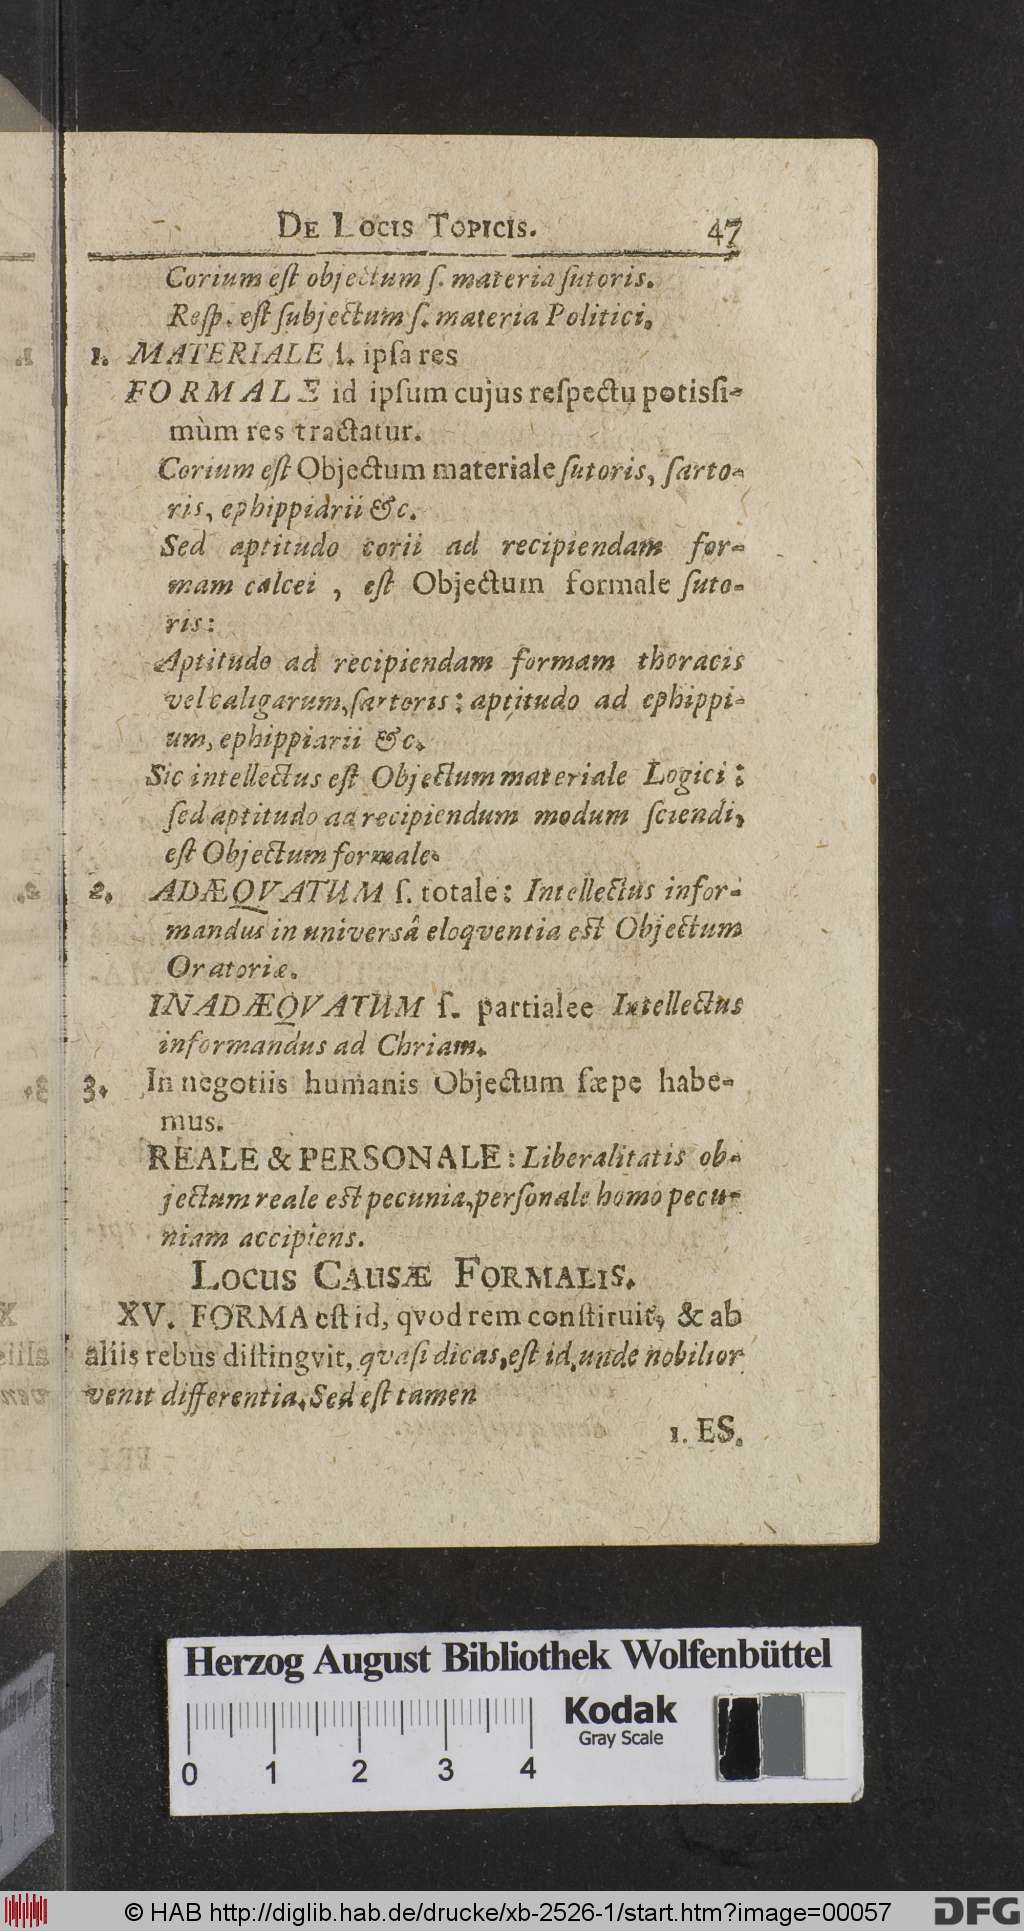 De Locis Topicis. 47
Corium eſt objectum ſ. materia ſutoris.
Reſp. eſt ſubjectum ſ. materia Politici,
1. MATERIALE ſ. ipſa res
FORMALE id ipſum cujus reſpectu potisſi-
mùm res tractatur.
Corium eſt Objectum materiale ſutoris, ſarto-
ris, ephippiarii &c.
Sed aptitudo corii ad recipiendam for-
mam calcei , eſt Objectum formale ſuto-
ris:
Aptitudo ad recipiendam formam thoracis
vel caligarum, ſartoris: aptitudo ad ephippi-
um, ephippiarii &c.
Sic intellectus eſt Objectum materiale Logici:
ſed aptitudo ad recipiendum modum ſciendi,
eſt Objectum formale.
2. ADÆQVATUM ſ. totale: Intellectus infor-
mandus in universâ eloqventia eſt Objectum
Oratoriæ.
INADÆQVATUM ſ. partialee Intellectus
informandus ad Chriam.
3. In negotiis humanis Objectum ſæpe habe-
mus.
REALE & PERSONALE: Liberalitatis ob-
jectum reale eſt pecunia, perſonale homo pecu-
niam accipiens.
Locus Causæ Formalis.
XV. FORMA eſt id, qvod rem conſtituit, & ab
aliis rebus diſtingvit, qvaſi dicas, eſt id, unde nobilior
venit differentia, Sed eſt tamen
1. ES.
Herzog August Bibliothek Wolfenbüttel
Kodak
Gray Scale
0 1 2 3 4
© HAB http://diglib.hab.de/drucke/xb-2526-1/start.htm?image=00057
DFG